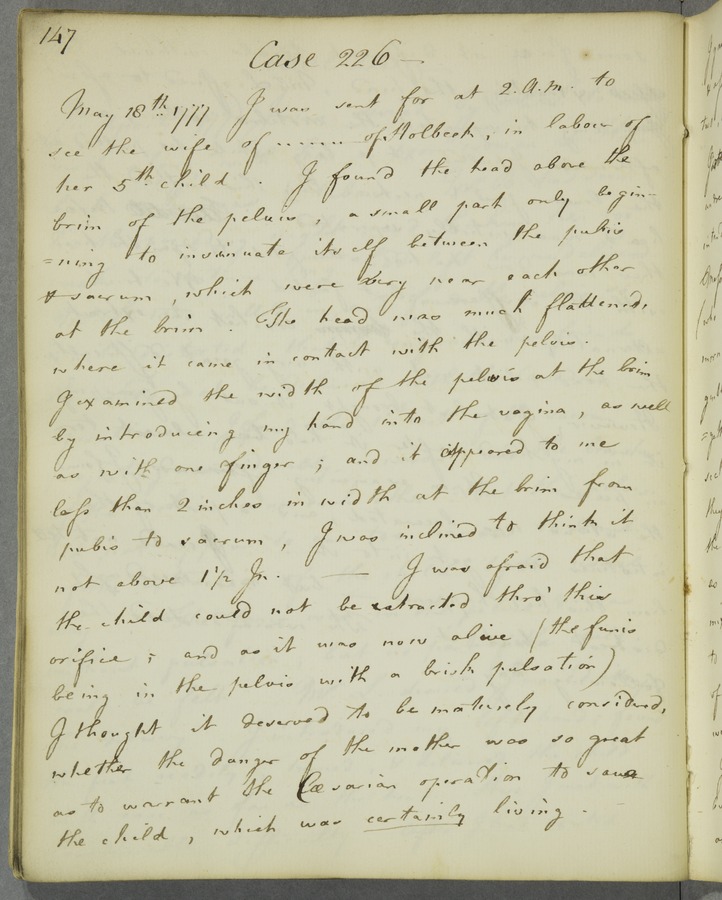 147
Case 226 —
May 18th. 1777 I was sent for at 2. A.m. to
see the wife of ...... of Holbeck, in labour of
her 5th. child. I found the head above the
brim of the pelvis, a small part only begin-
=ning to insinuate itself between the pubis
& sacrum, which were very near each other
at the brim. The head was much flattened,
where it came in contact with the pelvis.
I examined the width of the pelvis at the brim
by introducing my hand into the vagina, as well
as with one finger; and it appeared to me
less than 2 inches in width at the brim from
pubis to sacrum, I was inclined to think it
not above 1 1/2 In. — I was afraid that
the child could not be extracted thro' this
orifice; and as it was now alive (the funis
being in the pelvis with a brisk pulsation)
I thought it deserved to be maturely considered,
whether the danger of the mother was so great
as to warrant the Cæsarian operation to save
the child, which was certainly living.